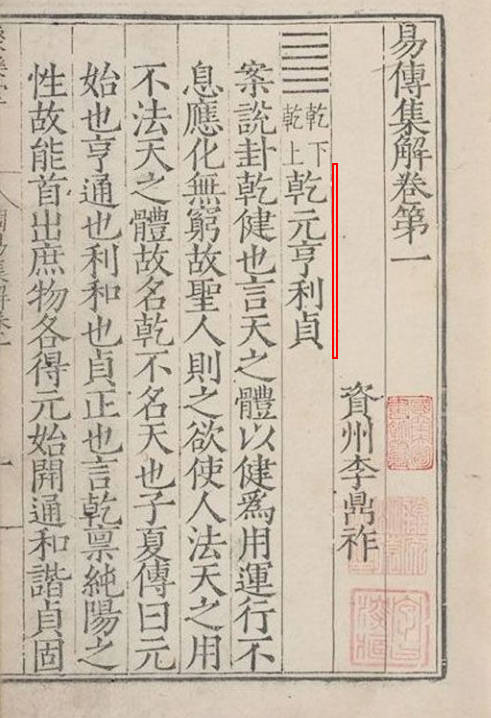 易傳集解卷第一
資州李鼎祚
乾下乾上乾元亨利貞
案說卦乾健也言天之體以健爲用運行不
息應化無窮故聖人則之欲使人法天之用
不法天之體故名乾不名天也子夏傳曰元
始也亨通也利和也貞正也言乾稟純陽之
性故能首出庶物各得元始開通和諧貞固